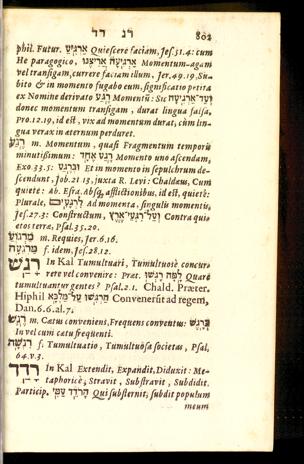 רג רד 803
phil. Futur. אַרְגִּיעַ Quiescere faciam, Jes. 51. 4: cum
He paragogico, אַרְגִּיעָה אֲרִיצֶנּוּ Momentum-agam
vel transigam, currere faciam illum, Jer. 49. 19, Su-
bito & in momento fugabo eum, significatio petita
ex Nomine derivato רֶגַע Momentũ: Sic וְעַד־אַרְגִּיעָה
donec momentum transigam, durat lingua falsa,
Pro. 12. 19, id est, vix ad momentum durat, cùm lin-
gua verax in æternum perduret.
רֶגַע m. Momentum, quasi Fragmentum temporis
minutissimum: רֶגַע אֶחָד Momento uno ascendam,
Exo. 33. 5: וּבְרֶגַע Et in momento in sepulchrum de-
scendunt, Job. 21. 13, juxta R. Levi: Chaldæus, Cum
quiete: Ab. Esra. Absq; afflictionibus, id est, quietè:
Plurale, לִרְגָעִים Ad momenta, singulis momentis,
Jes. 27. 3: Constructum, וְעַל־רִגְעֵי־אֶרֶץ Contra quie-
etos terræ, Psal. 35. 20.
מַרְגּוֹעַ m. Requies, Jer. 6. 16.
מַרְגֵּעָה f. idem, Jes. 28. 12.
רָגַשׁ In Kal Tumultuari, Tumultuosè concur-
rere vel convenire: Præt. לָמָּה רָגְשׁוּ Quare
tumultuantur gentes? Psal. 2. 1. Chald. Præter.
Hiphil הַרְגִּשׁוּ עַל־מַלְכָּא Convenerũt ad regem,
Dan. 6. 6. al. 7.
רֶגֶשׁ m. Cœtus conveniens, Frequens conventus: בְּרָגֶשׁ
In vel cum cœtu frequenti.
רִגְשָׁה f. Tumultuatio, Tumultuosa societas, Psal.
64. v. 3.
רָדַד In Kal Extendit, Expandit, Diduxit: Me-
taphoricè, Stravit, Substravit, Subdidit.
Particip. הָרֹדֵד עַמִּי Qui substernit, subdit populum
meum